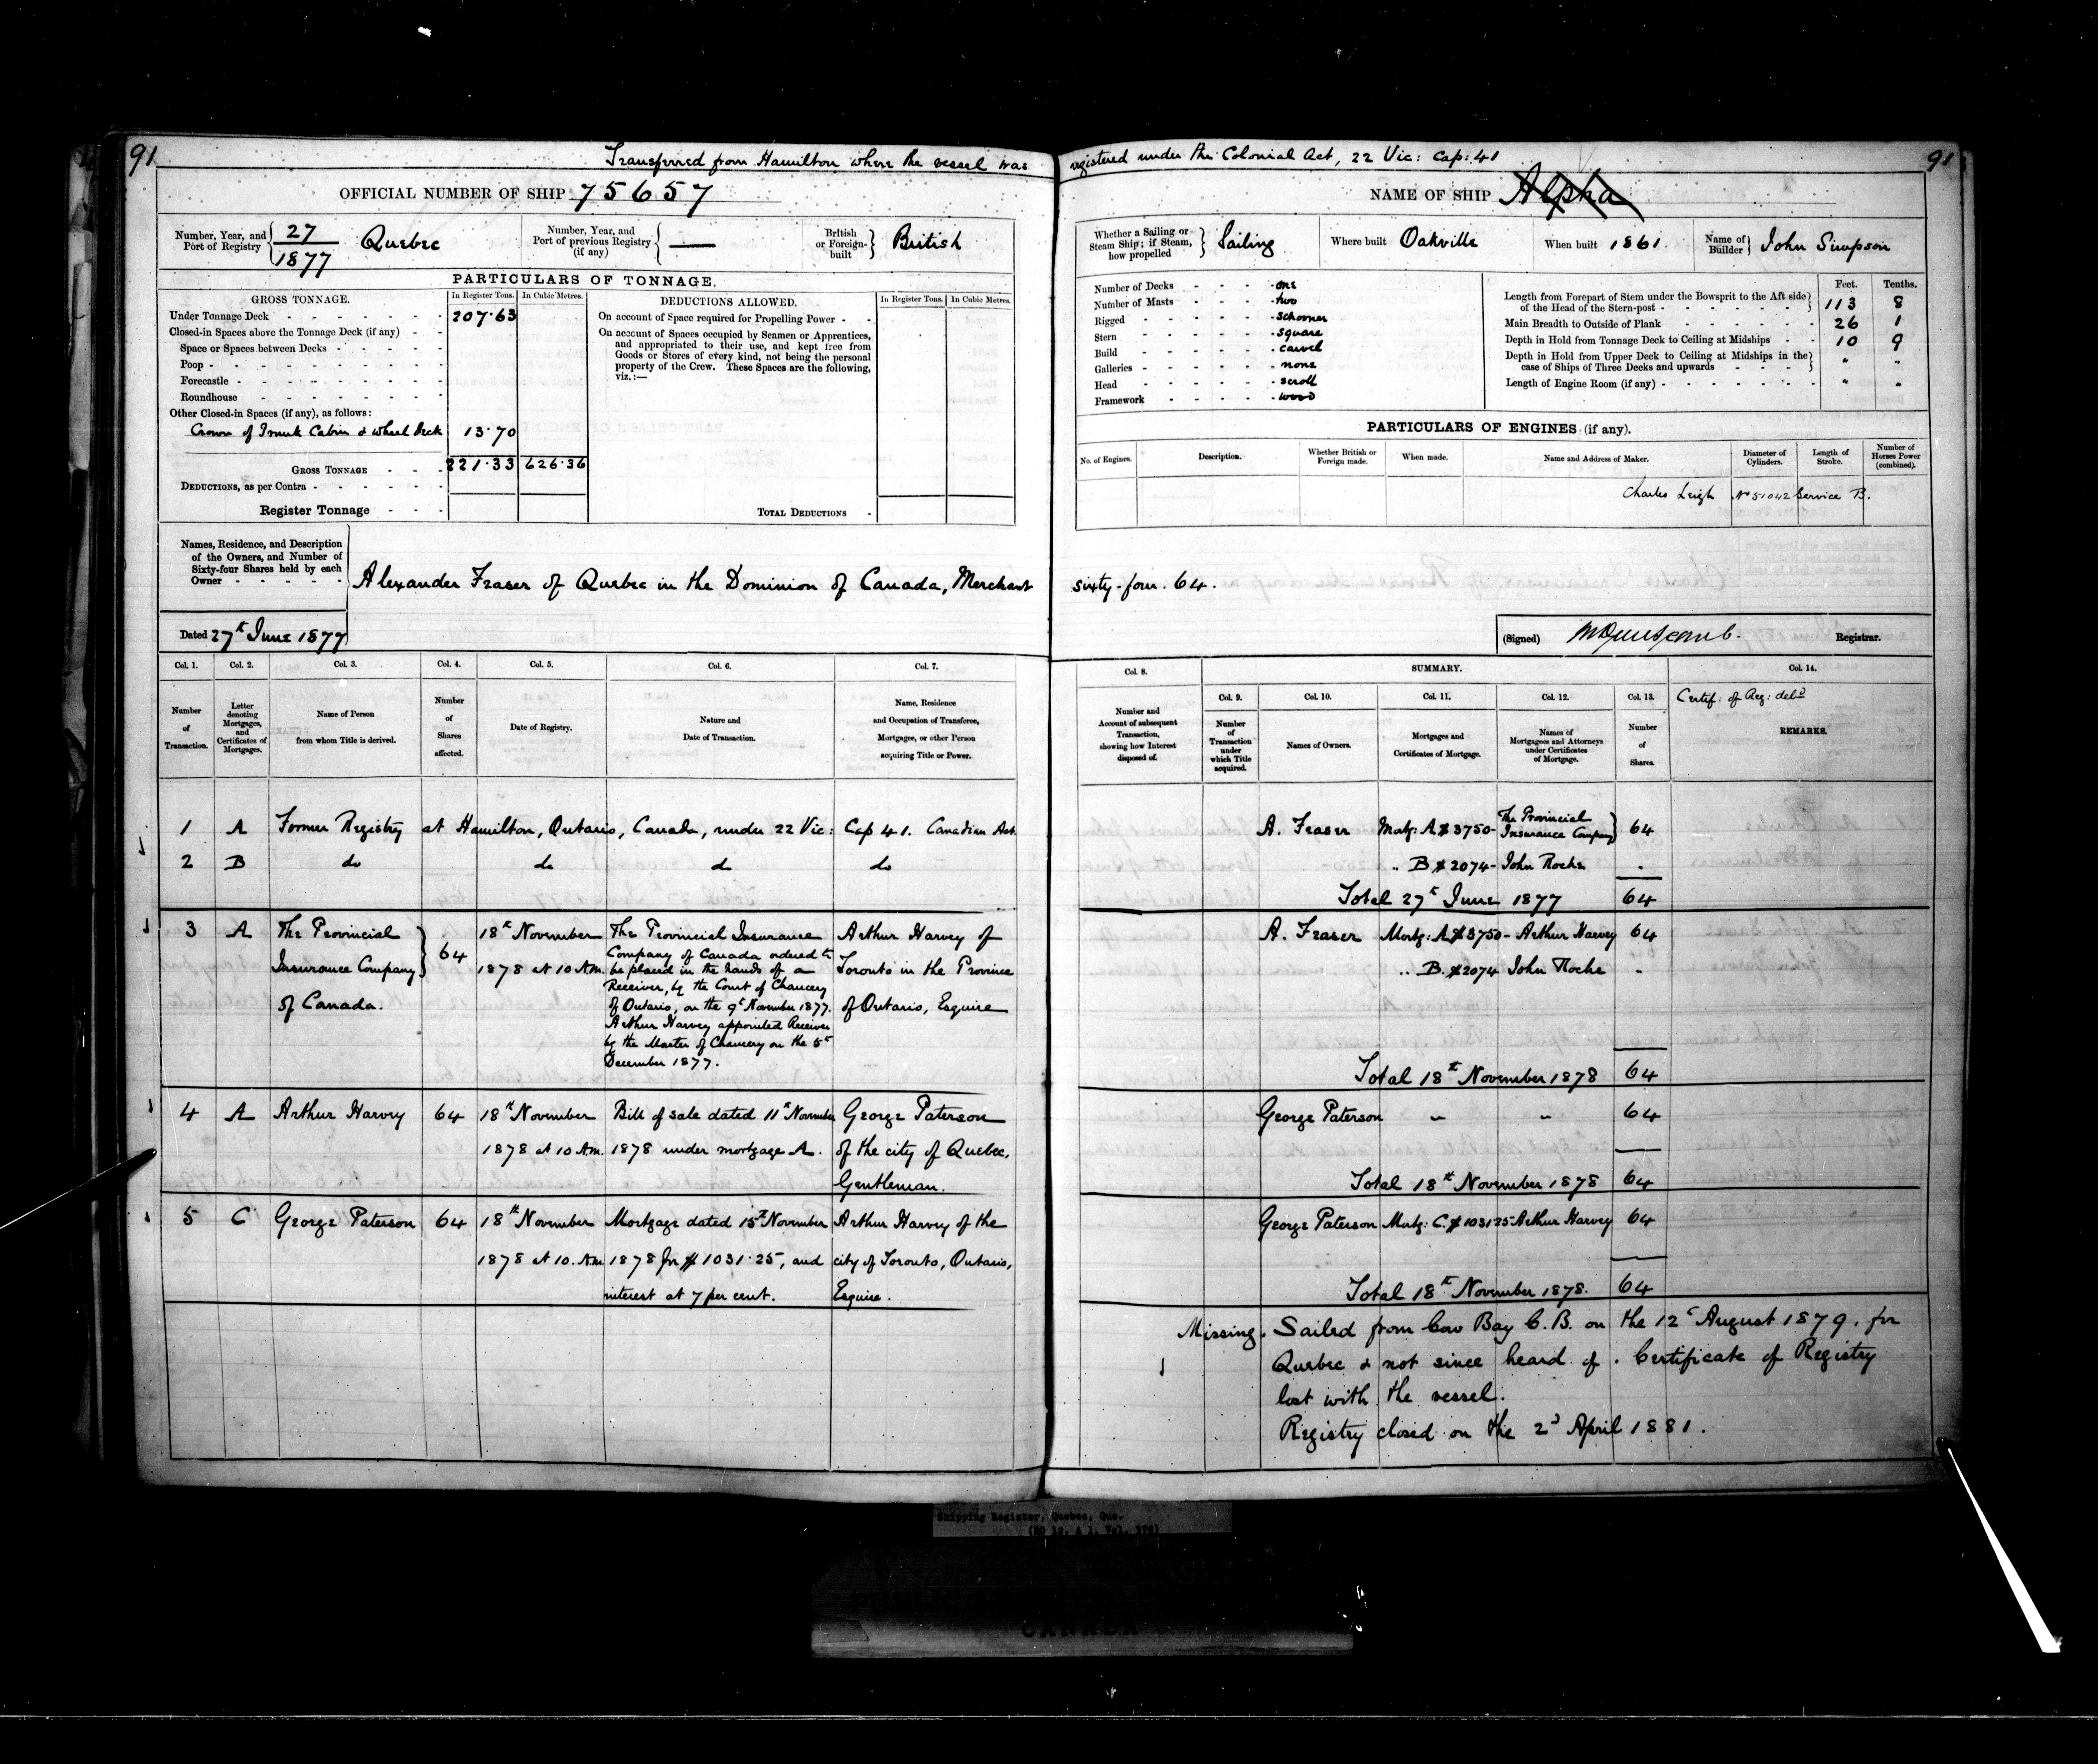 91
Transferred from Hamilton where the vessel was registered under the Colonial Act, 22 Vic: Cap: 41
91
OFFICIAL NUMBER OF SHIP 75657
NAME OF SHIP Alpha
Number, Year, and Port of Registry 27 / 1877 Quebec
Number, Year, and Port of previous Registry (if any) —
British or Foreign-built British
Whether a Sailing or Steam Ship; if Steam, how propelled Sailing
Where built Oakville
When built 1861.
Name of Builder John Simpson
PARTICULARS OF TONNAGE.
GROSS TONNAGE.
In Register Tons. In Cubic Metres.
Under Tonnage Deck - 207.63
Closed-in Spaces above the Tonnage Deck (if any) -
Space or Spaces between Decks -
Poop -
Forecastle -
Roundhouse
Other Closed-in Spaces (if any), as follows:
Crown of Trunk Cabin & Wheel Deck 13.70
GROSS TONNAGE - 221.33 626.36
DEDUCTIONS, as per Contra -
Register Tonnage
DEDUCTIONS ALLOWED.
In Register Tons. In Cubic Metres.
On account of Space required for Propelling Power -
On account of Spaces occupied by Seamen or Apprentices,
and appropriated to their use, and kept free from
Goods or Stores of every kind, not being the personal
property of the Crew. These Spaces are the following,
viz.:—
TOTAL DEDUCTIONS -
Number of Decks - one
Number of Masts - two
Rigged - schooner
Stern - square
Build - carvel
Galleries - none
Head - scroll
Framework - wood
Feet. Tenths.
Length from Forepart of Stem under the Bowsprit to the Aft side of the Head of the Stern-post - 113 8
Main Breadth to Outside of Plank - 26 1
Depth in Hold from Tonnage Deck to Ceiling at Midships - 10 9
Depth in Hold from Upper Deck to Ceiling at Midships in the case of Ships of Three Decks and upwards - " "
Length of Engine Room (if any) - " "
PARTICULARS OF ENGINES (if any).
No. of Engines. Description. Whether British or Foreign made. When made. Name and Address of Maker. Diameter of Cylinders. Length of Stroke. Number of Horses Power (combined).
Charles Leigh No 51042 Service B.
Names, Residence, and Description
of the Owners, and Number of
Sixty-four Shares held by each
Owner -
Alexander Fraser of Quebec in the Dominion of Canada, Merchant sixty-four. 64.
Dated 27th June 1877
(Signed) Registrar.
Col. 1. Col. 2. Col. 3. Col. 4. Col. 5. Col. 6. Col. 7.
Number of Transaction.
Letter denoting Mortgages, and Certificates of Mortgages.
Name of Person from whom Title is derived.
Number of Shares affected.
Date of Registry.
Nature and Date of Transaction.
Name, Residence and Occupation of Transferee, Mortgagee, or other Person acquiring Title or Power.
Col. 8. SUMMARY. Col. 14.
Col. 9. Col. 10. Col. 11. Col. 12. Col. 13.
Number and Account of subsequent Transaction, showing how Interest disposed of.
Number of Transaction under which Title acquired.
Names of Owners.
Mortgages and Certificates of Mortgage.
Names of Mortgagees and Attorneys under Certificates of Mortgage.
Number of Shares.
Certif: of Reg: deld
REMARKS.
1 A Former Registry at Hamilton, Ontario, Canada, under 22 Vic: Cap 41. Canadian Act.
2 B do do do do
A. Fraser Mortg: A $3750- The Provincial Insurance Company 64
.. B $2074- John Roche -
Total 27th June 1877 64
3 A The Provincial Insurance Company of Canada. 64
18th November 1878 at 10 A.M.
The Provincial Insurance
Company of Canada ordered to
be placed in the hands of a
Receiver, by the Court of Chancery
of Ontario, on the 9th November 1877.
Arthur Harvey appointed Receiver
by the Master of Chancery on the 5th
December 1877.
Arthur Harvey of
Toronto in the Province
of Ontario, Esquire
A. Fraser Mortg: A $3750- Arthur Harvey 64
.. B. $2074 John Roche -
Total 18th November 1878 64
4 A Arthur Harvey 64
18th November 1878 at 10 A.M.
Bill of sale dated 11th November
1878 under mortgage A.
George Paterson
of the city of Quebec,
Gentleman.
George Paterson " " 64
Total 18th November 1878 64
5 C George Paterson 64
18th November 1878 at 10. A.M.
Mortgage dated 15th November
1878 for $1031.25, and
interest at 7 per cent.
Arthur Harvey of the
city of Toronto, Ontario,
Esquire.
George Paterson Mortg: C. $103125 Arthur Harvey 64
Total 18th November 1878. 64
Missing. Sailed from Cow Bay C.B. on the 12th August 1879, for
Quebec & not since heard of. Certificate of Registry
lost with the vessel.
Registry closed on the 2d April 1881.
Shipping Register, Quebec, Que.
CANADA